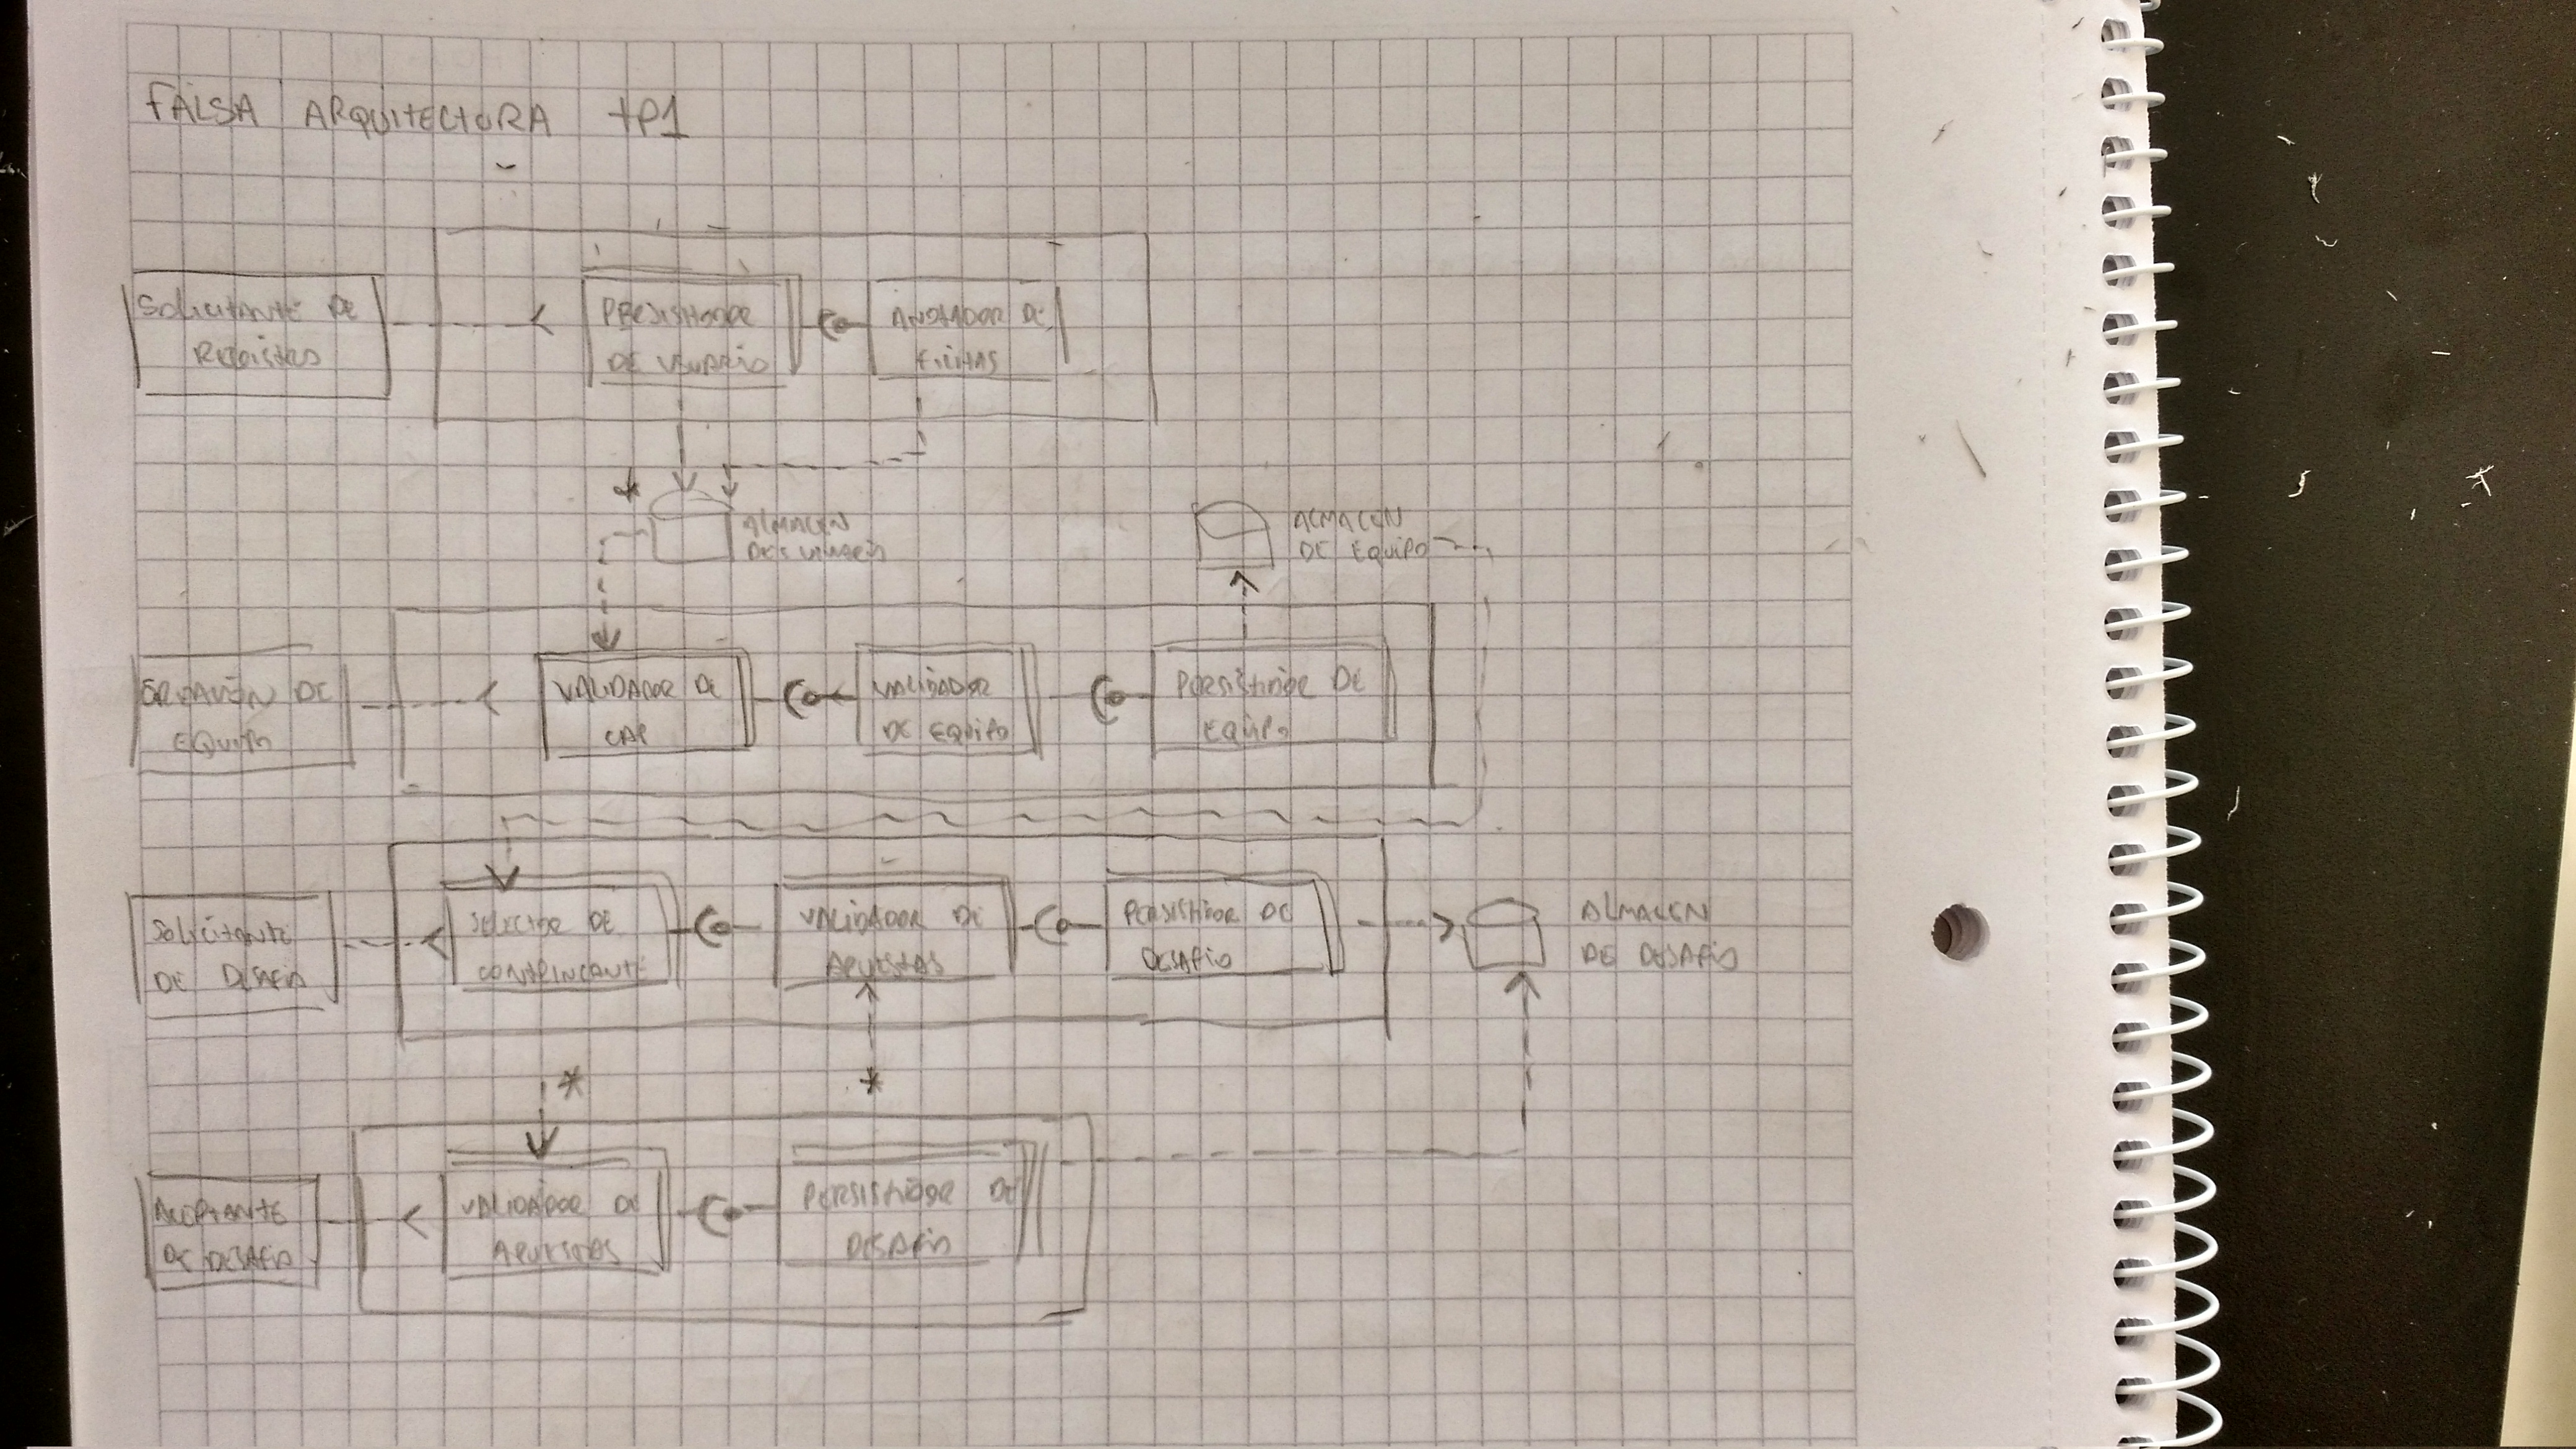 FALSA ARQUITECTURA TP1
SOLICITANTE DE
REGISTRO
PERSISTIDOR
DE USUARIO
ANOTADOR DE
FICHAS
*
ALMACEN
DE USUARIO
ALMACEN
DE EQUIPO
DE
EQUIPO
VALIDADOR DE
CAP
VALIDADOR
DE EQUIPO
PERSISTIDOR DE
EQUIPO
SOLICITANTE
DE DESAFIO
SELECTOR DE
CONTRINCANTE
VALIDADOR DE
APUESTAS
PERSISTIDOR DE
DESAFIO
ALMACEN
DE DESAFIO
*
*
ACEPTANTE
DE DESAFIO
VALIDADOR DE
APUESTAS
PERSISTIDOR DE
DESAFIO